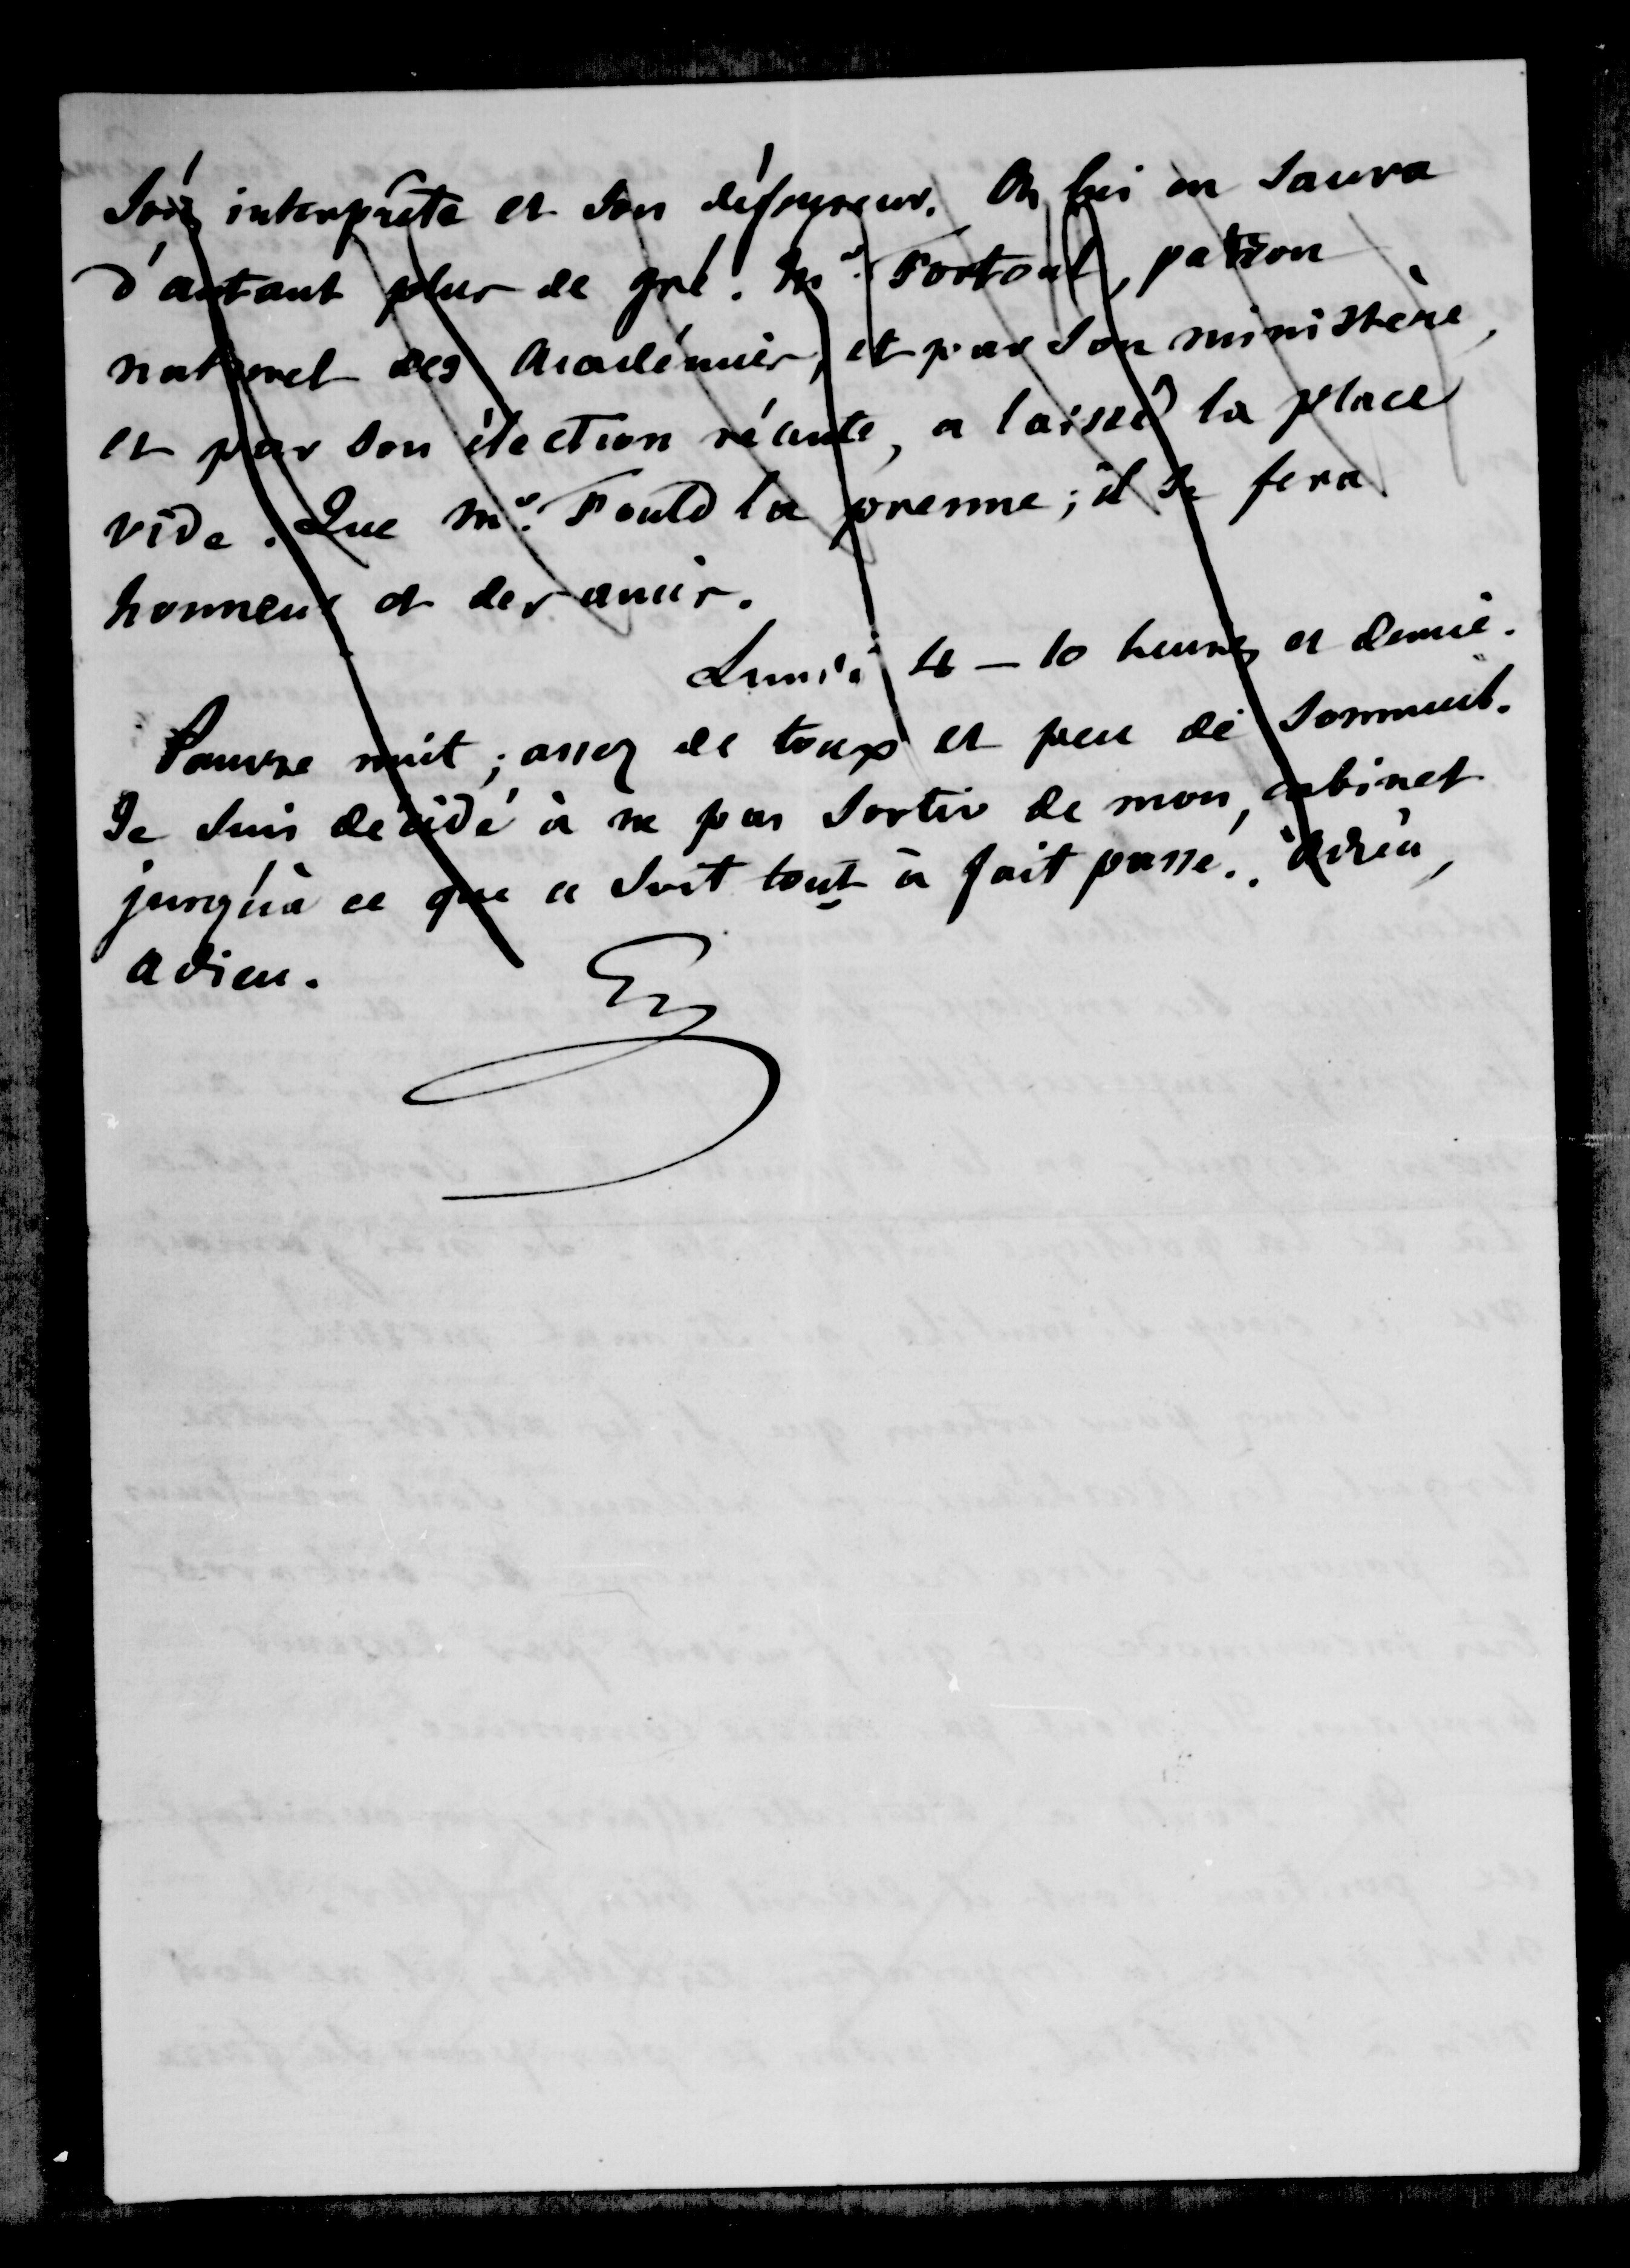 Son interprête et son défenseur. On lui en saura
d'autant plus de gré. Mr. Fortoul, patron
naturel des Académies, et par son ministère,
et par son élection récente, a laissé la place
vide. Que Mr. Fould la prenne ; il se fera
honneur et des amis.
Lundi 4 - 10 heures et demie.
Pauvre nuit ; assez de toux et peu de sommeil.
Je suis décidé à ne pas sortir de mon cabinet
jusqu'à ce que ce soit tout à fait passé. Adieu,
adieu.